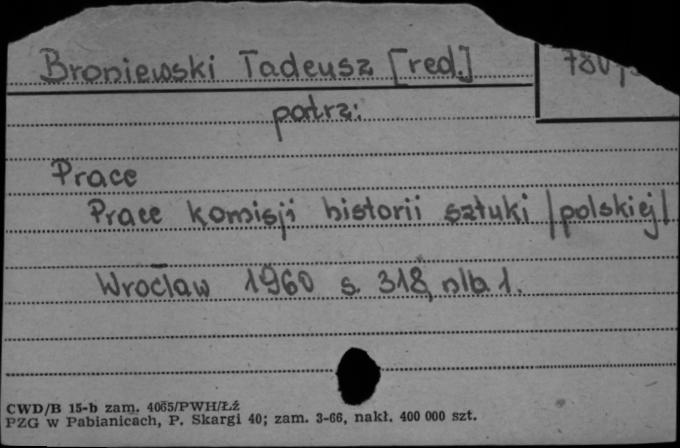 Broniewski Tadeusz [red.]
patrz:
Prace
Prace komisji historii sztuki /polskiej/
Wrocław 1960 s. 318, nlb 1.
CWD/B 15-b zam. 4065/PWH/Łź
PZG w Pabianicach, P. Skargi 40; zam. 3-66, nakł. 400 000 szt.